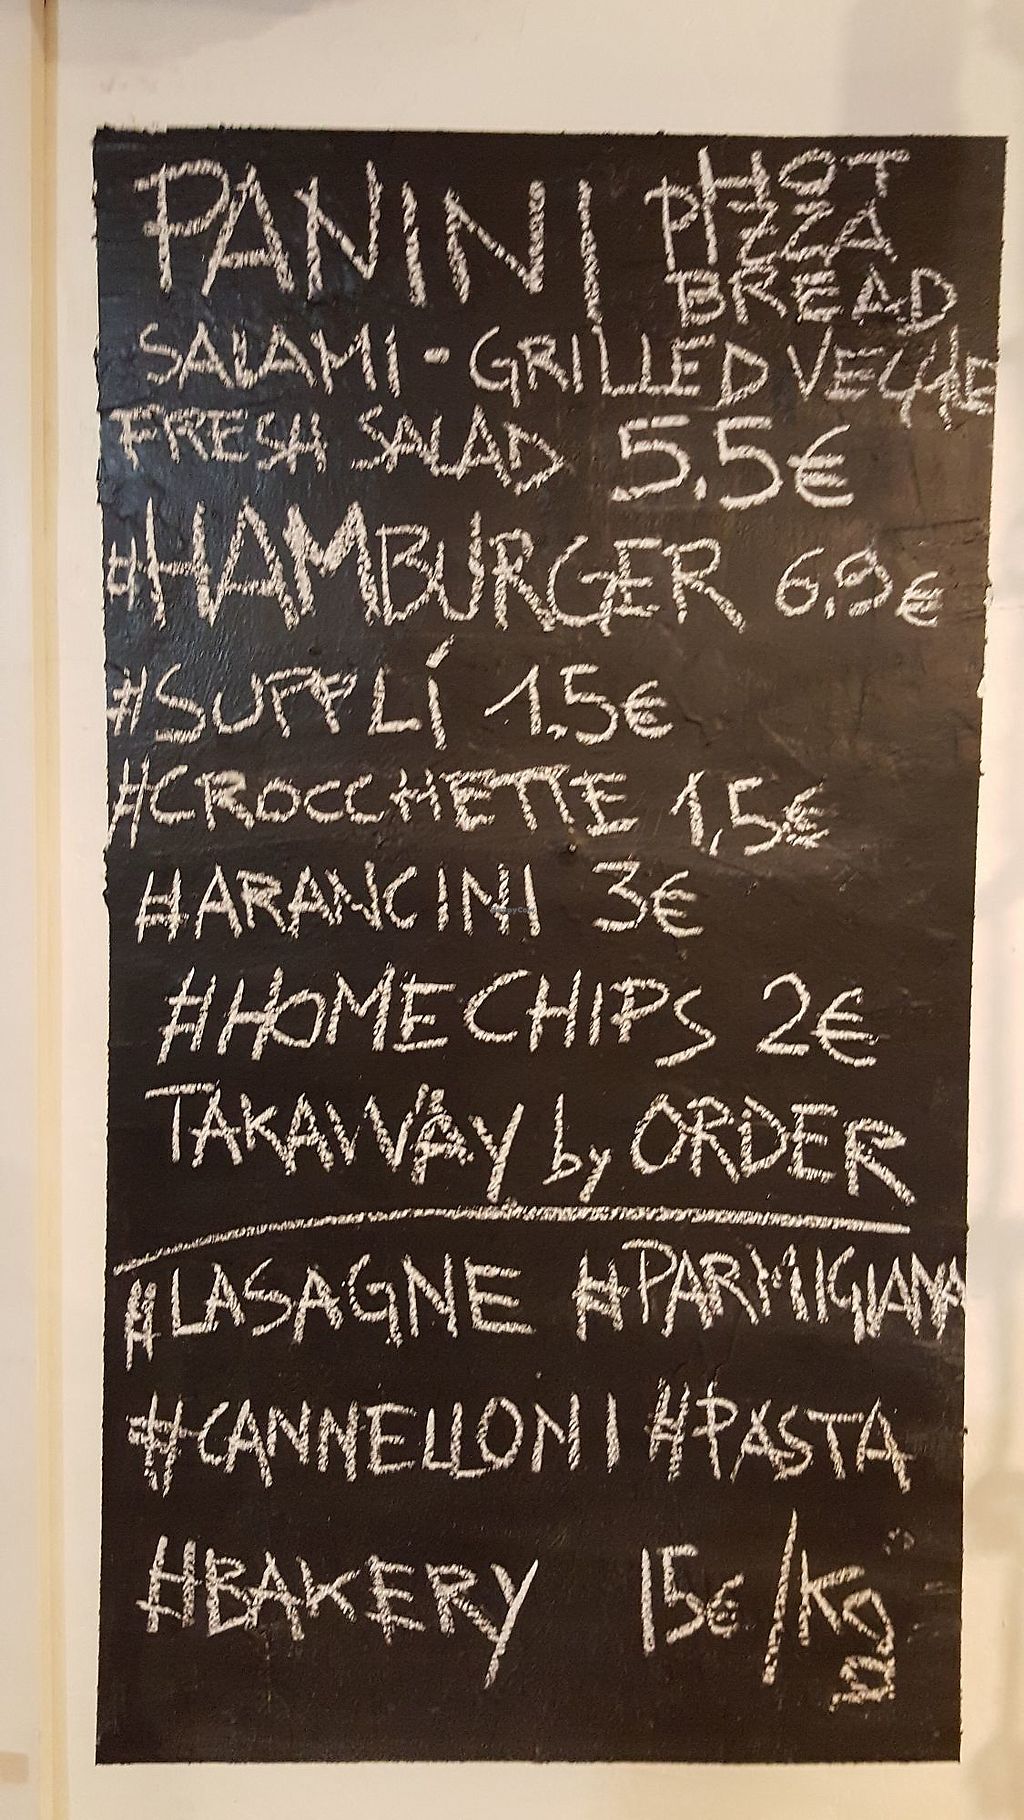 PANINI HOT PIZZA BREAD
SALAMI - GRILLED VEGGIE
FRESH SALAD 5.5€
#HAMBURGER 6.9€
#SUPPLÍ 1.5€
#CROCCHETTE 1,5€
#ARANCINI 3€
#HOMECHIPS 2€
TAKAWAY by ORDER
#LASAGNE #PARMIGIANA
#CANNELLONI #PASTA
#BAKERY 15€/Kg